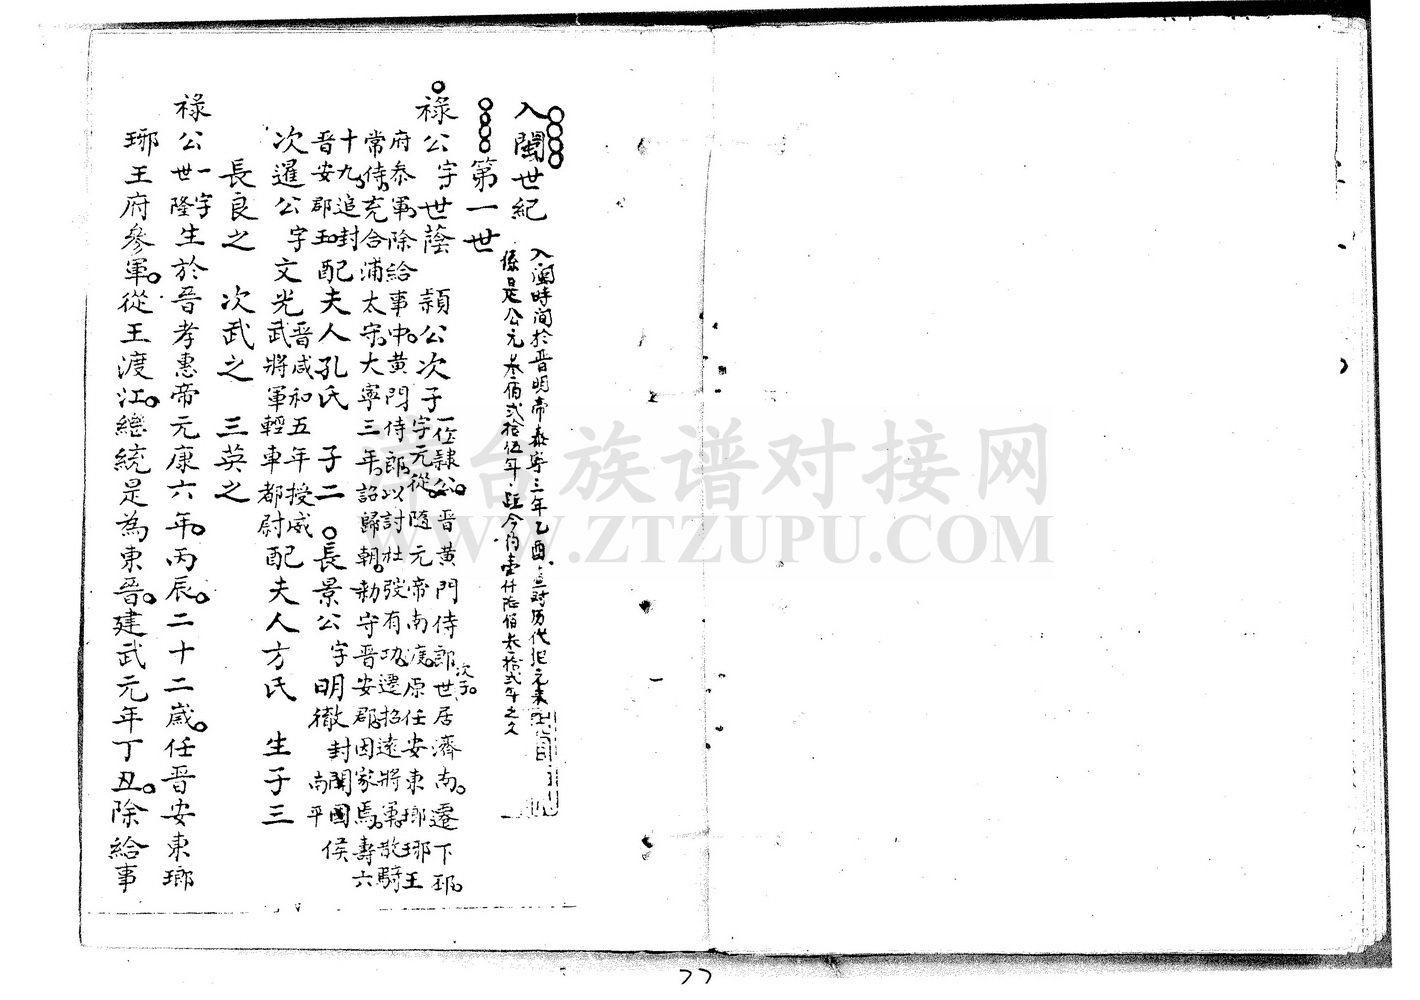 入閩世紀
入閩時间於晋明帝泰寜三年乙酉
对历代纪元表
係是公元叁佰弍拾伍年．距今约壹仟陆佰叁拾弍年之久
第一世
祿公字世蔭 顈公次子一位隷公。晋黄門侍郎世居濟南。遷下邳。
次子。
字元從。隨元帝南渡。原任安東瑯琊王
府参軍。除給事中。黄門侍郎。以討杜弢有功。遷招遠將軍。散騎
常侍。充合浦太守。大寧三年。詔歸朝。勅守晋安郡。因家焉。壽六
十九。追封
晋安郡王。配夫人孔氏 子二 長景公字明徹封開國侯
南平
次暹公字文光晋咸和五年授威
武將軍輕車都尉配夫人方氏 生子三
長良之 次武之 三英之
祿公一字
世隆生於晉孝惠帝元康六年。丙辰。二十二歲。任晋安東瑯
琊王府參軍。從王渡江。繼統是為東晋。建武元年丁丑。除給事
津台族谱对接网
WWW.ZTZUPU.COM